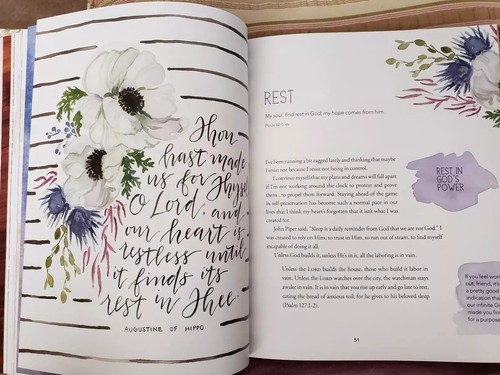 Thou
hast made
us for Thyself
O Lord, and
our heart is
restless until
it finds its
rest in Thee.
AUGUSTINE OF HIPPO
REST
My soul, find rest in God; my hope comes from him.
I've been running a bit ragged lately and thinking that maybe
I resist rest because I resist not being in control.
I convince myself that my plans and dreams will fall apart
if I'm not working around the clock to protect and prove
them, to propel them forward. Staying ahead of the game
in self-preservation has become such a normal pace in our
lives that I think my heart's forgotten that it isn't what I was
created for.
John Piper said, "Sleep is a daily reminder from God that we are not God." I
was created to rely on Him, to trust in Him, to run out of steam, to find myself
incapable of doing it all.
Unless God builds it, unless He's in it, all the laboring is in vain.
Unless the LORD builds the house, those who build it labor in
vain. Unless the LORD watches over the city, the watchman stays
awake in vain. It is in vain that you rise up early and go late to rest,
eating the bread of anxious toil; for he gives to his beloved sleep
(Psalm 127:1-2).
51
REST IN
GOD'S
POWER
If you feel worn
out, friend, it's
a pretty good
indication that
our infinite God
made you finite
for a purpose